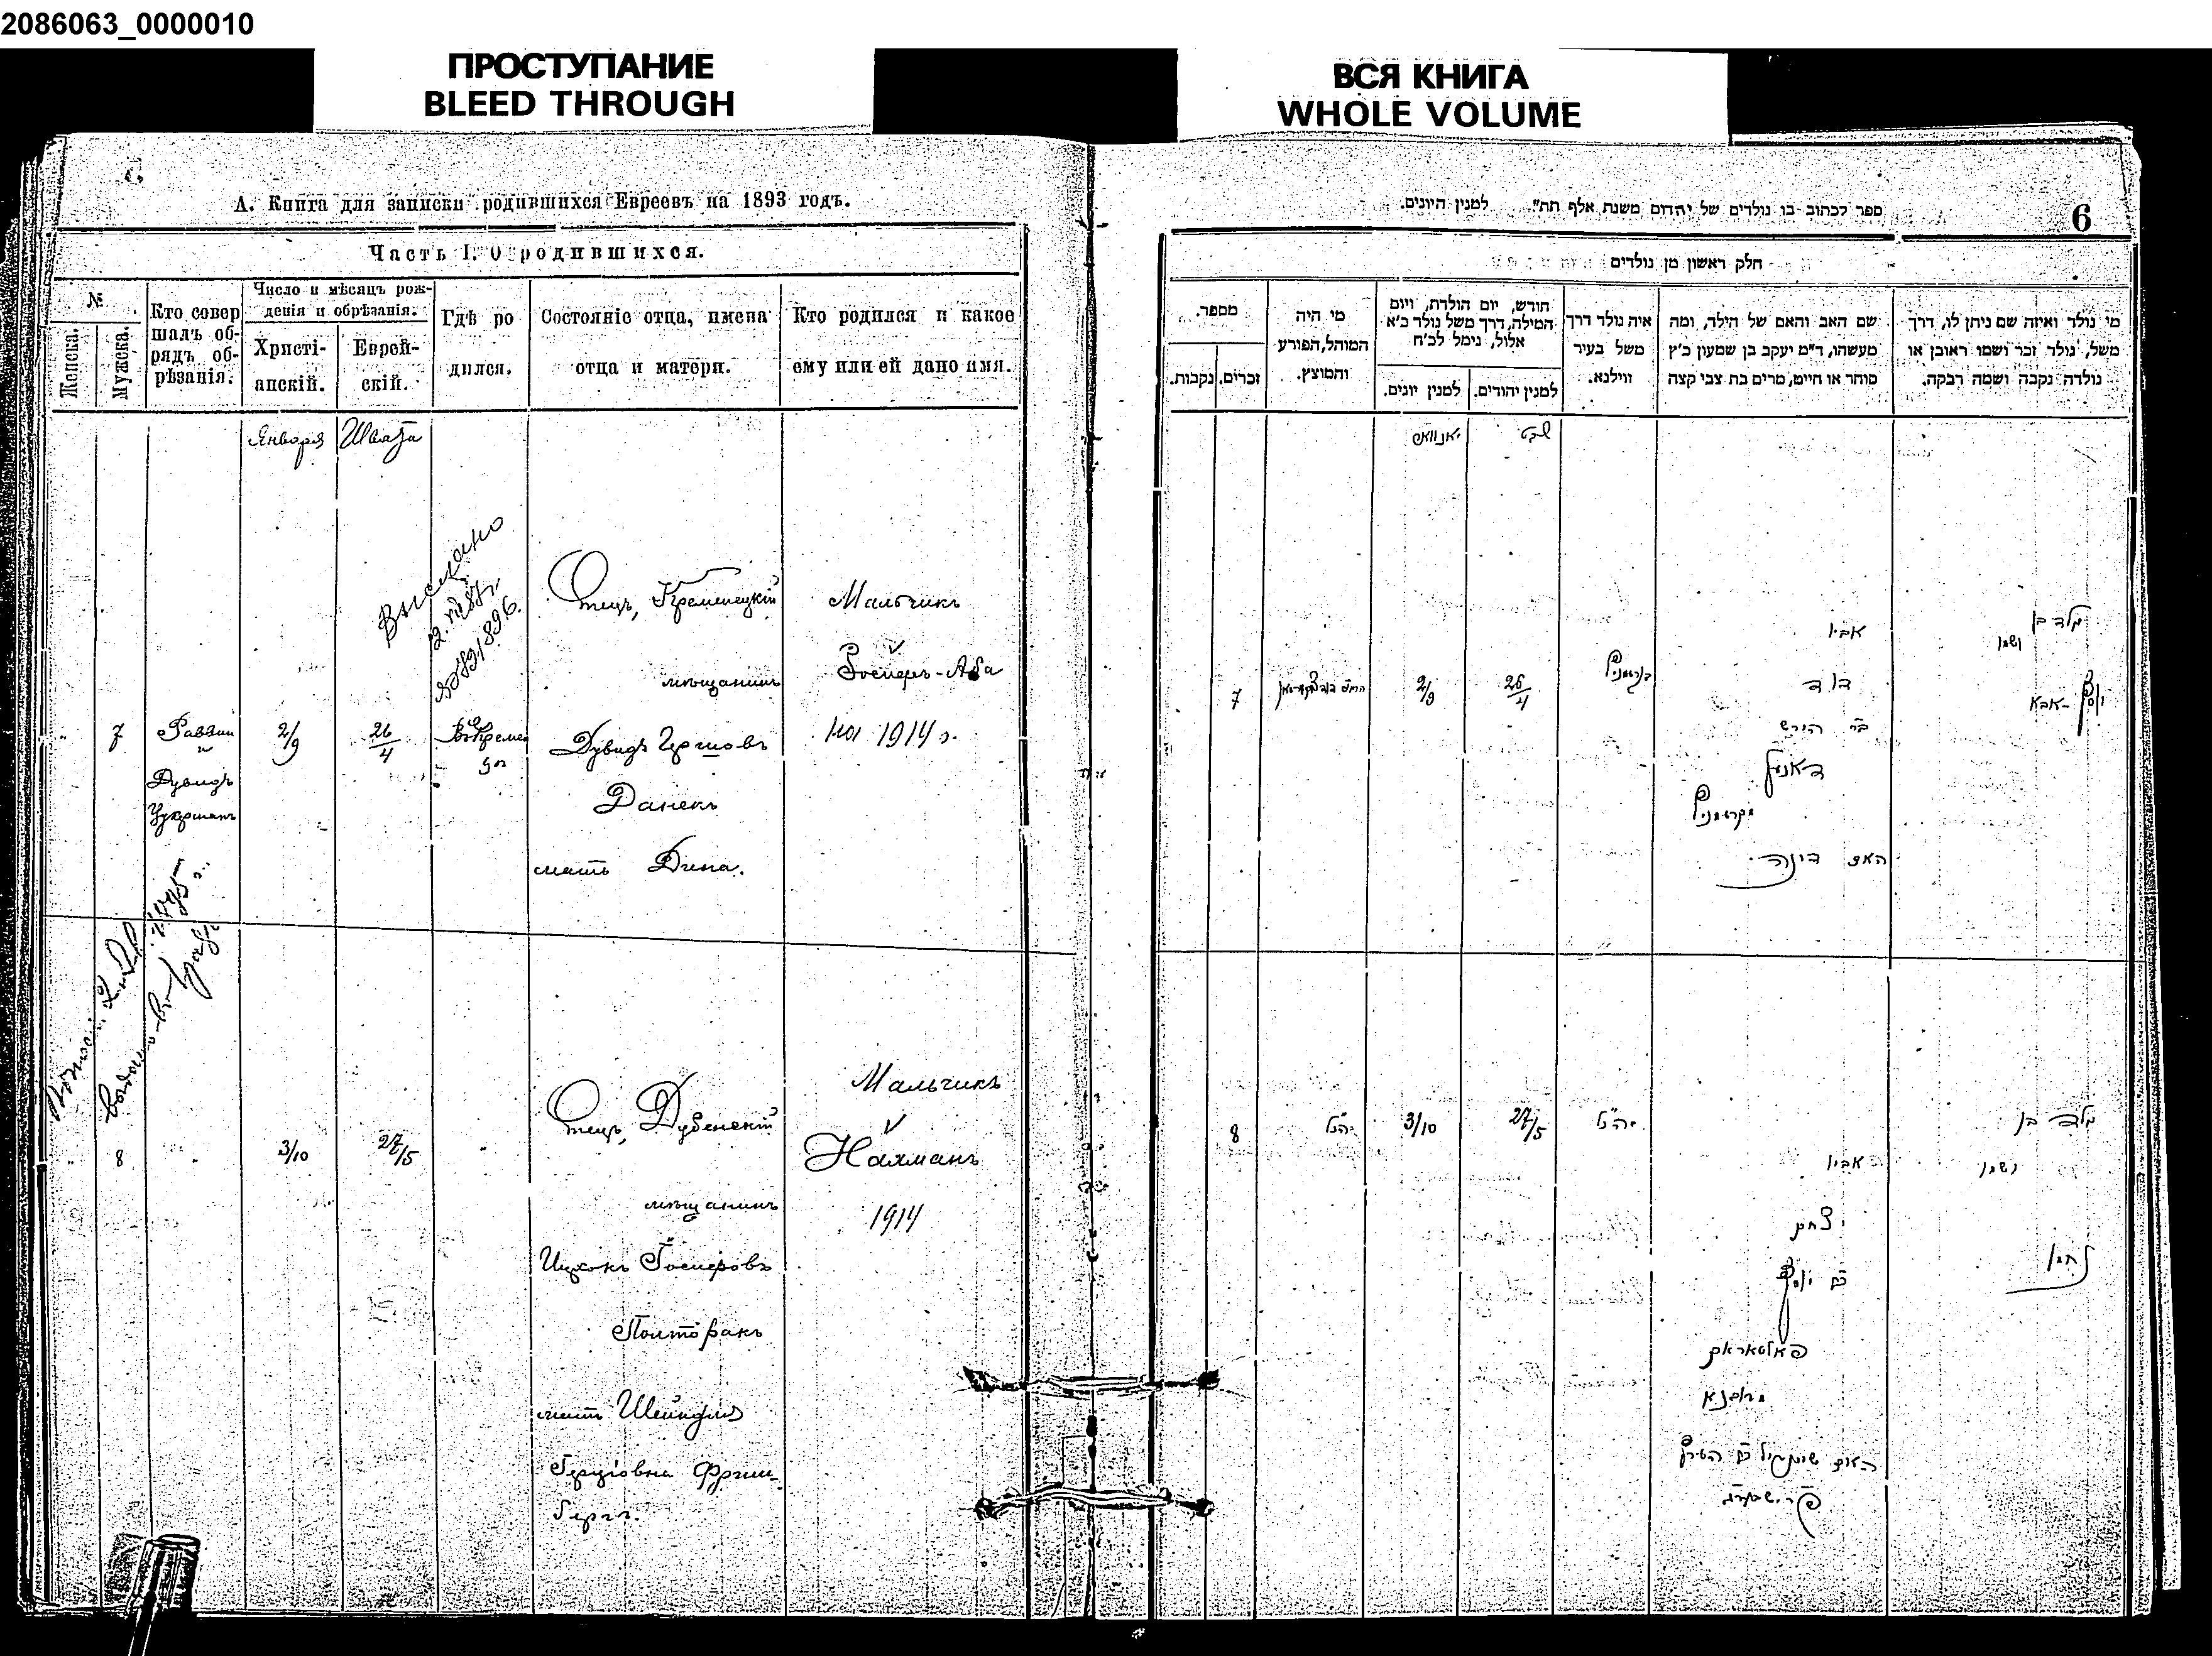 2086063_0000010
ПРОСТУПАНИЕ
BLEED THROUGH
ВСЯ КНИГА
WHOLE VOLUME
А. Книга для записки родившихся Евреевъ на 1893 годъ.
Часть I. О родившихся.
№
Женска.
Мужска.
Кто совер
шалъ об-
рядъ об-
рѣзанія.
Число и мѣсяцъ рож-
денія и обрѣзанія.
Христі-
анскій.
Еврей-
скій.
Гдѣ ро
дился.
Состояніе отца, имена
отца и матери.
Кто родился и какое
ему или ей дано имя.
Января
Швата
Выслано
1896.
7
Раввин
и
Дувидъ
Цукерманъ
2/9
26/4
Отецъ, Кременецкій
мѣщанинъ
Дувидъ Гершовъ
Данекъ
мать Дина.
Мальчикъ
Іосиферъ-Аба
на 1914 г.
8
"
3/10
27/5
"
Отецъ, Дубенскій
мѣщанинъ
Ицхокъ
Полторакъ
мать Шейндля
Мальчикъ
Нахманъ
1914
ספר לכתוב בו נולדים של יהדום משנת אלף תת״ למנין היונים.
6
חלק ראשון מן נולדים
מספר.
זכרים.
נקבות.
מי היה
המוהל,הפורע
והמוצץ.
חורש, יום הולדת, ויום
המילה,דרך משל נולד כ״א
אלול, נימל לכ״ח
למנין יונים.
למנין יהודים.
איה נולד דרך
משל בעיר
ווילנא.
שם האב והאם של הילד, ומה
מעשהו, ד״מ יעקב בן שמעון כ״ץ
סוחר או חייט, מרים בת צבי קצה
מי נולד ואיזה שם ניתן לו, דרך
משל, נולד זכר ושמו ראובן או
נולדה נקבה ושמה רבקה.
יאנוואר
שבט
7
2/9
26/4
אביו
דוד
בר הירש
דאניק
האם דינה
נולד בן
ושמו
יוסף-אבא
8
הנ״ל
3/10
27/5
הנ״ל
אביו
יצחק
בר יוסף
פאלטאראק
מדובנא
נולד בן
ושמו
נחמן